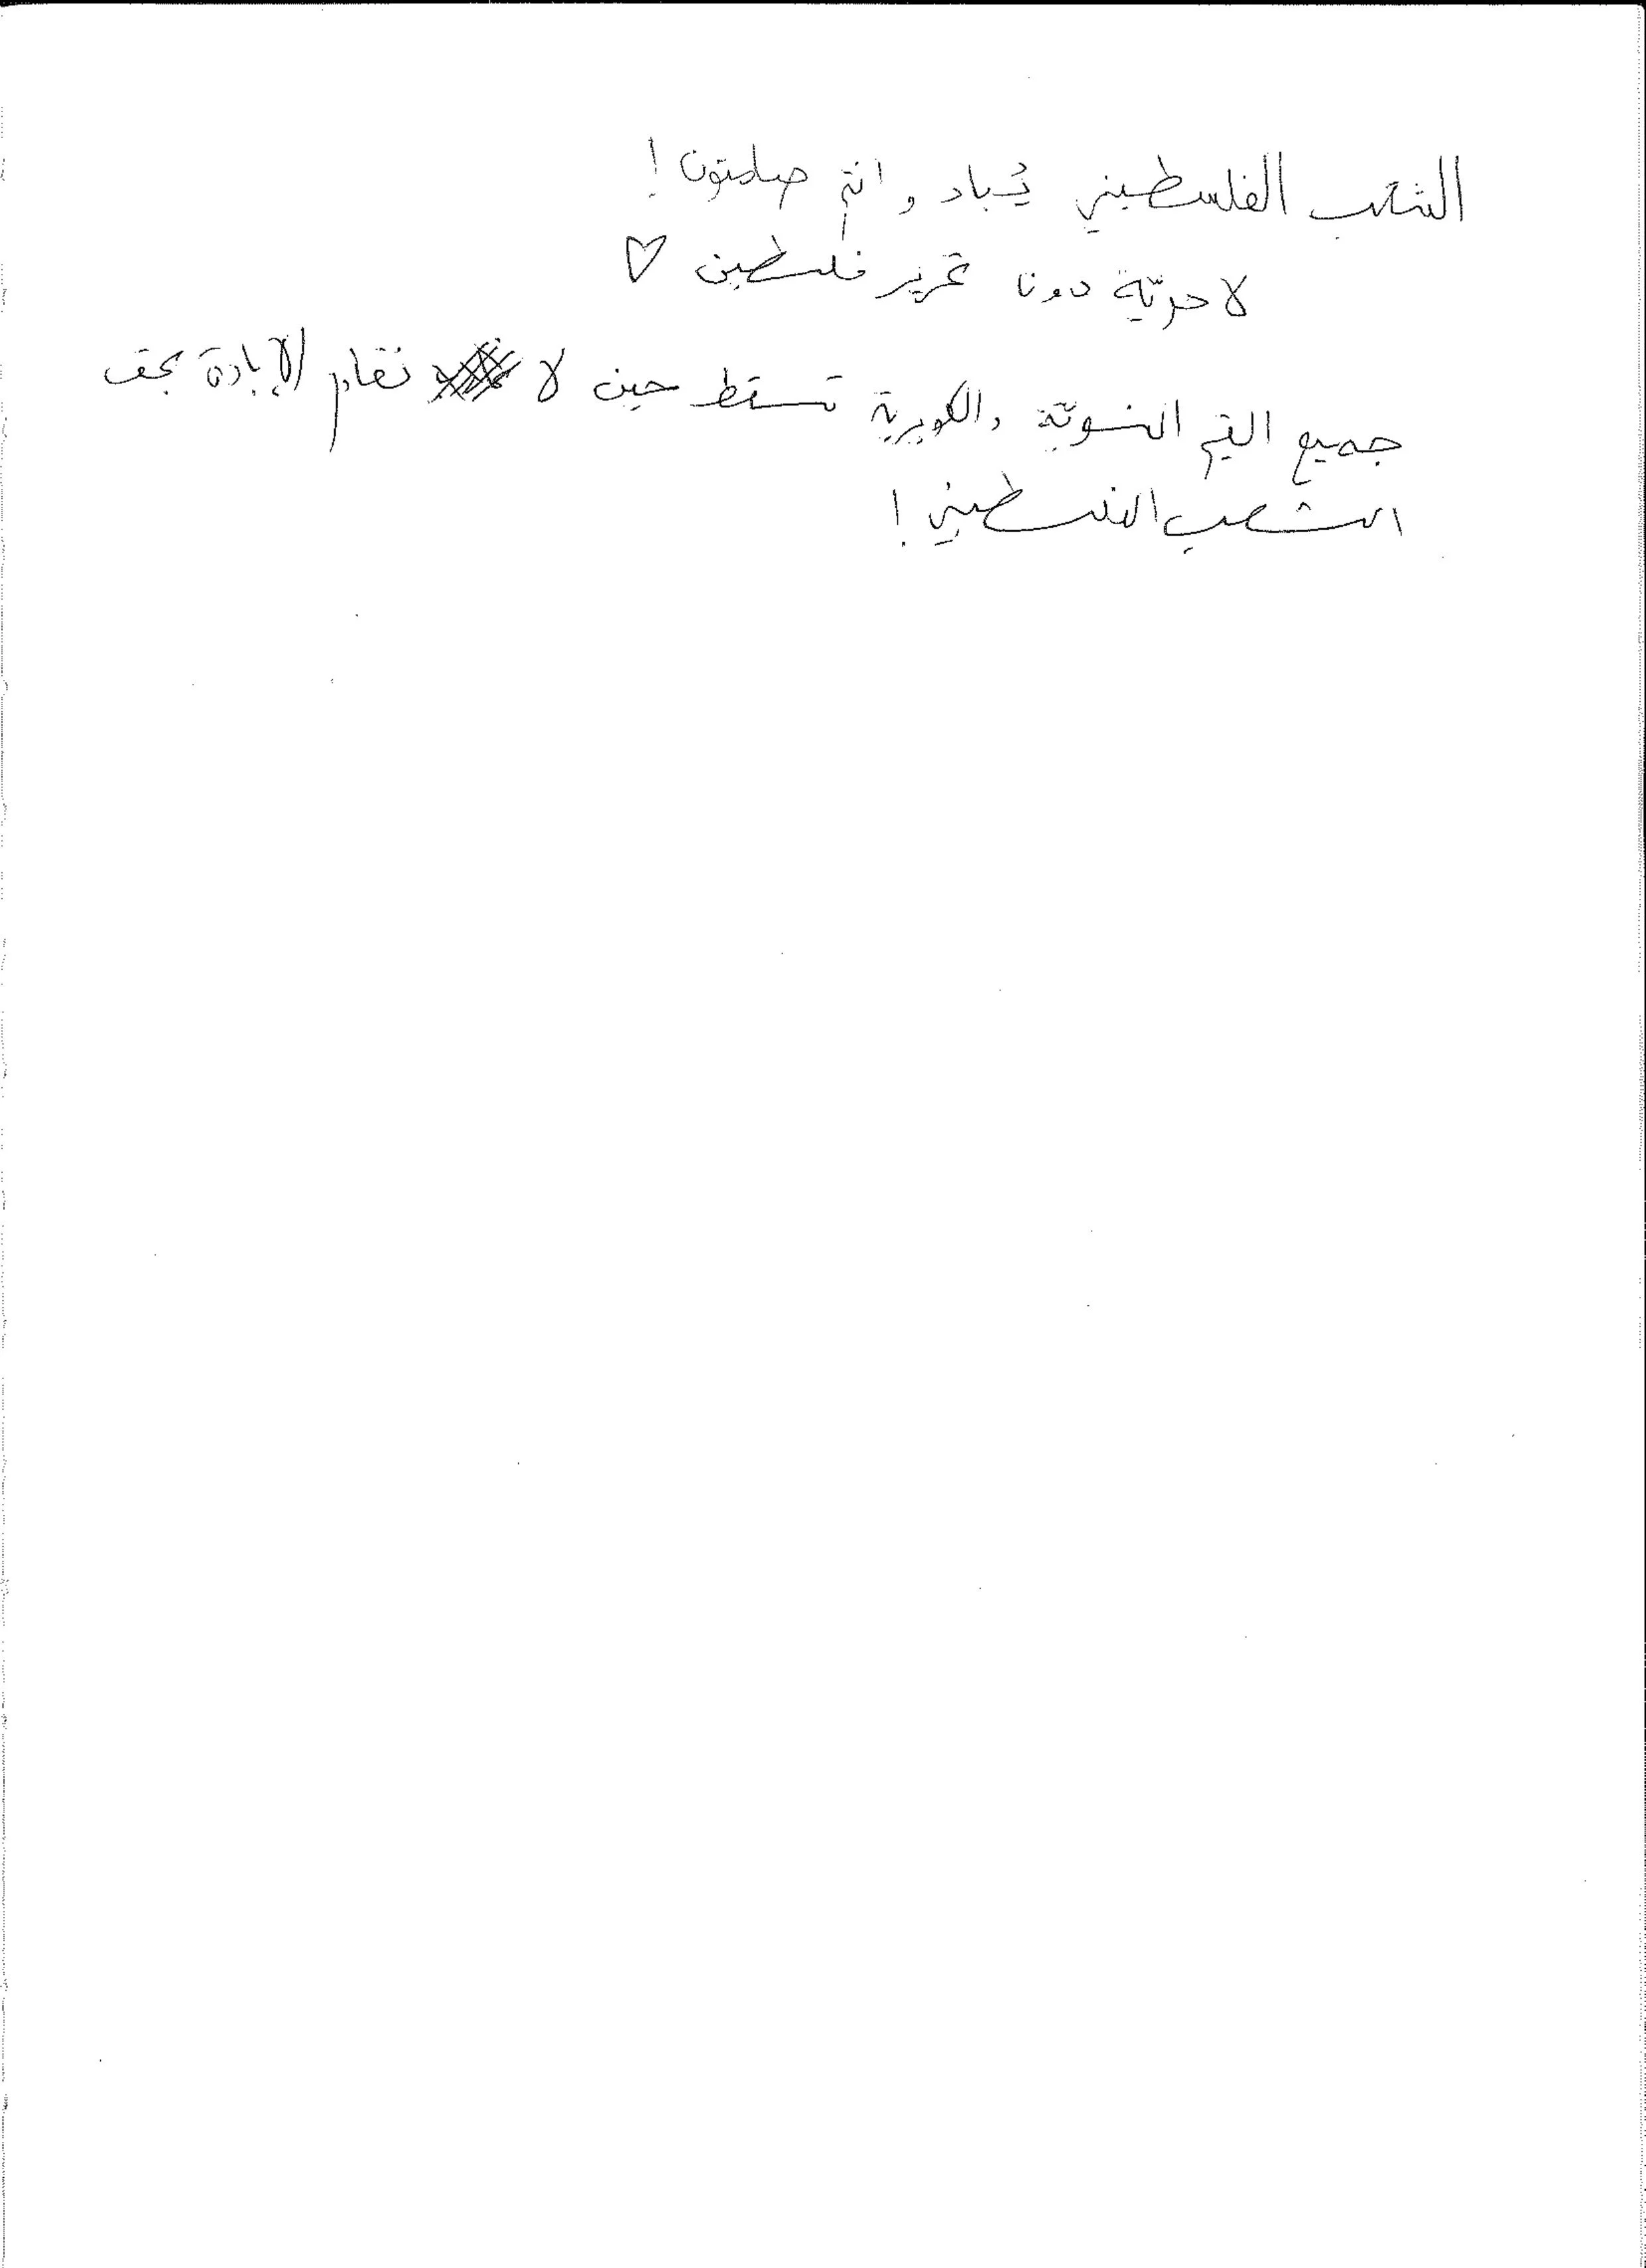 الشعب الفلسطيني يُباد وانتم صامتون!
لا حريّة دون تحرير فلسطين ♡
جميع القيم النسويّة والكويرية تسقط حين لا نقاوم الإبادة بحق
الشعب الفلسطيني!